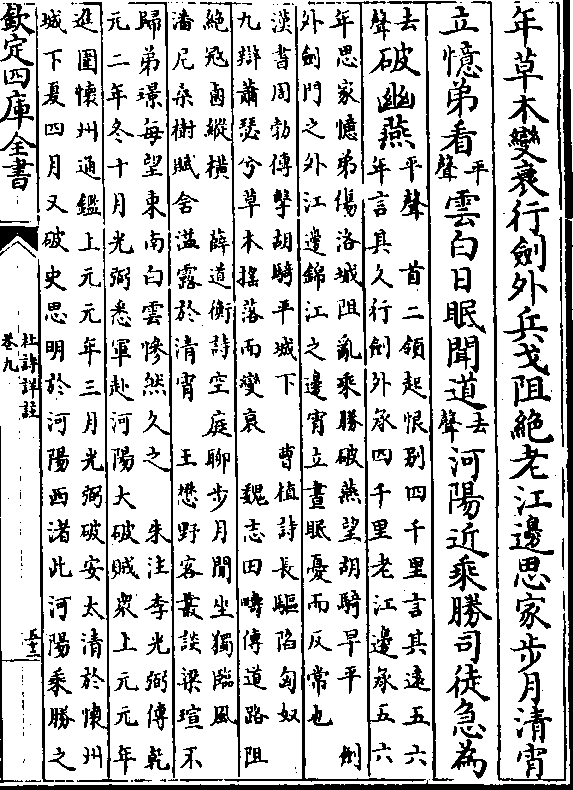 年草木變衰行劍外兵戈阻絶老江邊思家步月清宵
立憶弟看平聲雲白日眠聞道去聲河陽近乘勝司徒急為
去聲破幽燕平聲 首二領起恨别四千里言其逺五六
年言其久行劍外承四千里老江邊承五六
年思家憶弟傷洛城阻亂乘勝破燕望胡騎早平 劍
外劍門之外江邊錦江之邊宵立晝眠憂而反常也
漢書周勃傳擊胡騎平城下 曹植詩長驅陷匈奴
九辯蕭瑟兮草木揺落而變衰 魏志田疇傳道路阻
絶冦虜縱横 薛道衡詩空庭聊步月閒坐獨臨風
潘尼桑樹賦含湛露於清宵 王懋野客叢談梁瑄不
歸弟璟每望東南白雲慘然久之 朱注李光弼傳乾
元二年冬十月光弼悉軍赴河陽大破賊衆上元元年
進圍懷州通鑑上元元年三月光弼破安太清於懷州
城下夏四月又破史思明於河陽西渚此河陽乘勝之
欽定四庫全書
杜詩詳註
卷九